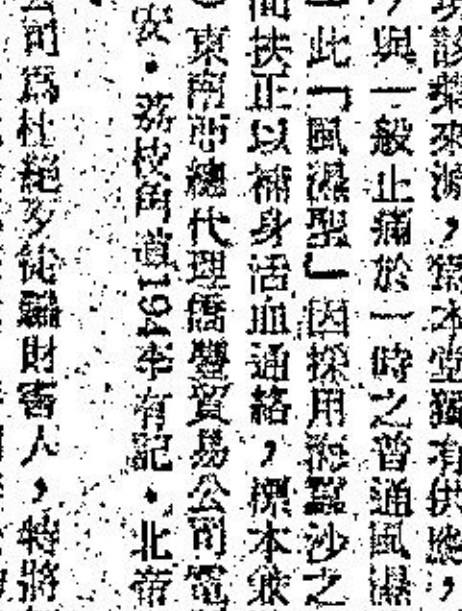 該藥來源，為本堂獨有供應，
，與一般止痛於一時之普通風濕
此「風濕聖」因採用
扶正以補身活血通絡，標本兼
東南亞總代理僑豐貿易公司電
安・荔枝角道194李有記・北帝
公司為杜絕歹徒騙財害人，特將